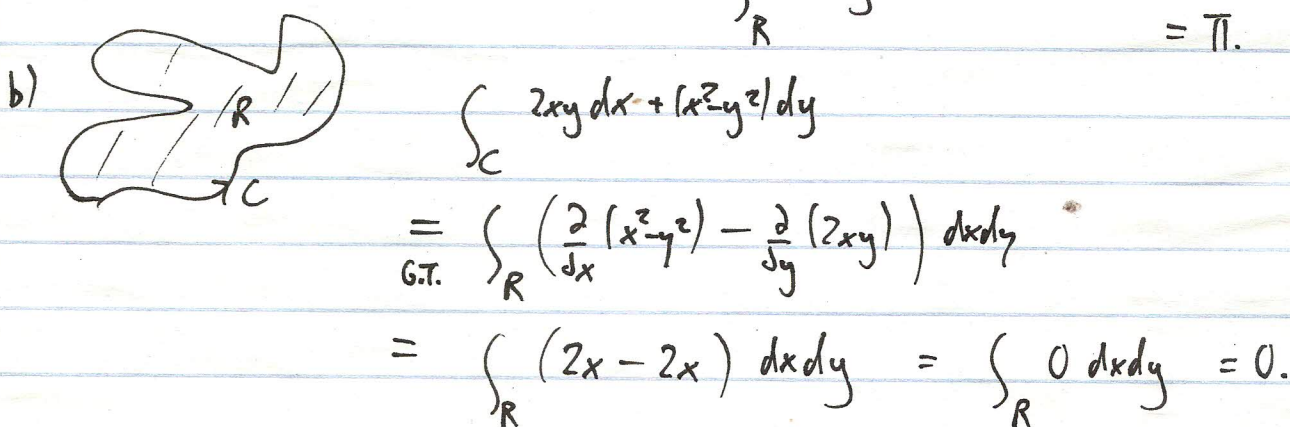 ∫_R
= π.
b)
R
C
∫_C 2xy dx + (x²-y²) dy
= G.T. ∫_R (∂/∂x (x²-y²) − ∂/∂y (2xy)) dxdy
= ∫_R (2x − 2x) dxdy = ∫_R 0 dxdy = 0.